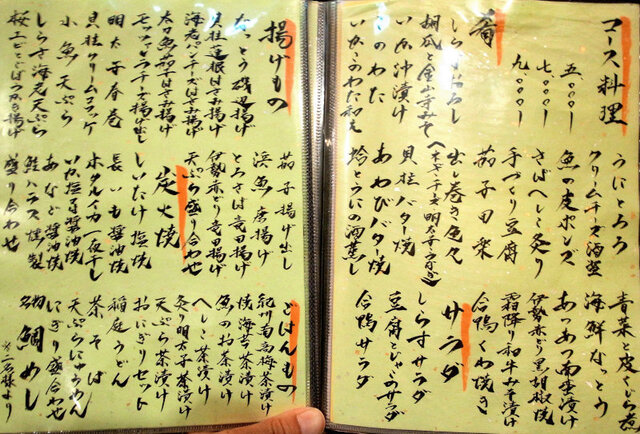 コース料理
五、〇〇〇ー
七、〇〇〇ー
九、〇〇〇ー
肴
しらすおろし
胡瓜と金山寺みそ
いか沖漬け
このわた
いかふわた和え
うにとろろ
クリームチーズ酒盗
魚の皮ポンズ
さばへしこ炙り
手づくり豆腐
茄子田楽
出し巻き色々
貝柱バター焼
あわびバター焼
蛤とうにの酒蒸し
青菜と皮くじら煮
海鮮なっとう
あつあつ南蛮漬け
伊勢赤どり黒胡椒焼
霜降り和牛みそ漬け
合鴨くわ焼き
サラダ
しらすサラダ
豆腐とじゃこのサラダ
合鴨サラダ
揚げもの
なっとう磯辺揚げ
貝柱蓮根はさみ揚げ
海老パンチーズはさみ揚げ
太刀魚茄子はさみ揚げ
モッツァレラチーズ揚げ出し
明太子春巻
貝柱クリームコロッケ
小魚天ぷら
しらす海苔天ぷら
桜エビとごぼうかき揚げ
茄子揚げ出し
浜魚唐揚げ
とろさば竜田揚げ
伊勢赤どり竜田揚げ
天ぷら盛り合わせ
炭火焼
しいたけ塩焼
長いも醤油焼
ホタルイカ一夜干し
いか塩辛醤油焼
あなご醤油焼
鮭ハラス燻製
盛り合わせ
ごはんもの
紀州南高梅茶漬け
焼海苔茶漬け
魚のお茶漬け
へしこ茶漬け
炙り明太子茶漬け
天ぷら茶漬け
おにぎりセット
稲庭うどん
茶そば
天ぷらにゅうめん
にぎり盛り合わせ
鯛めし
※二名様より